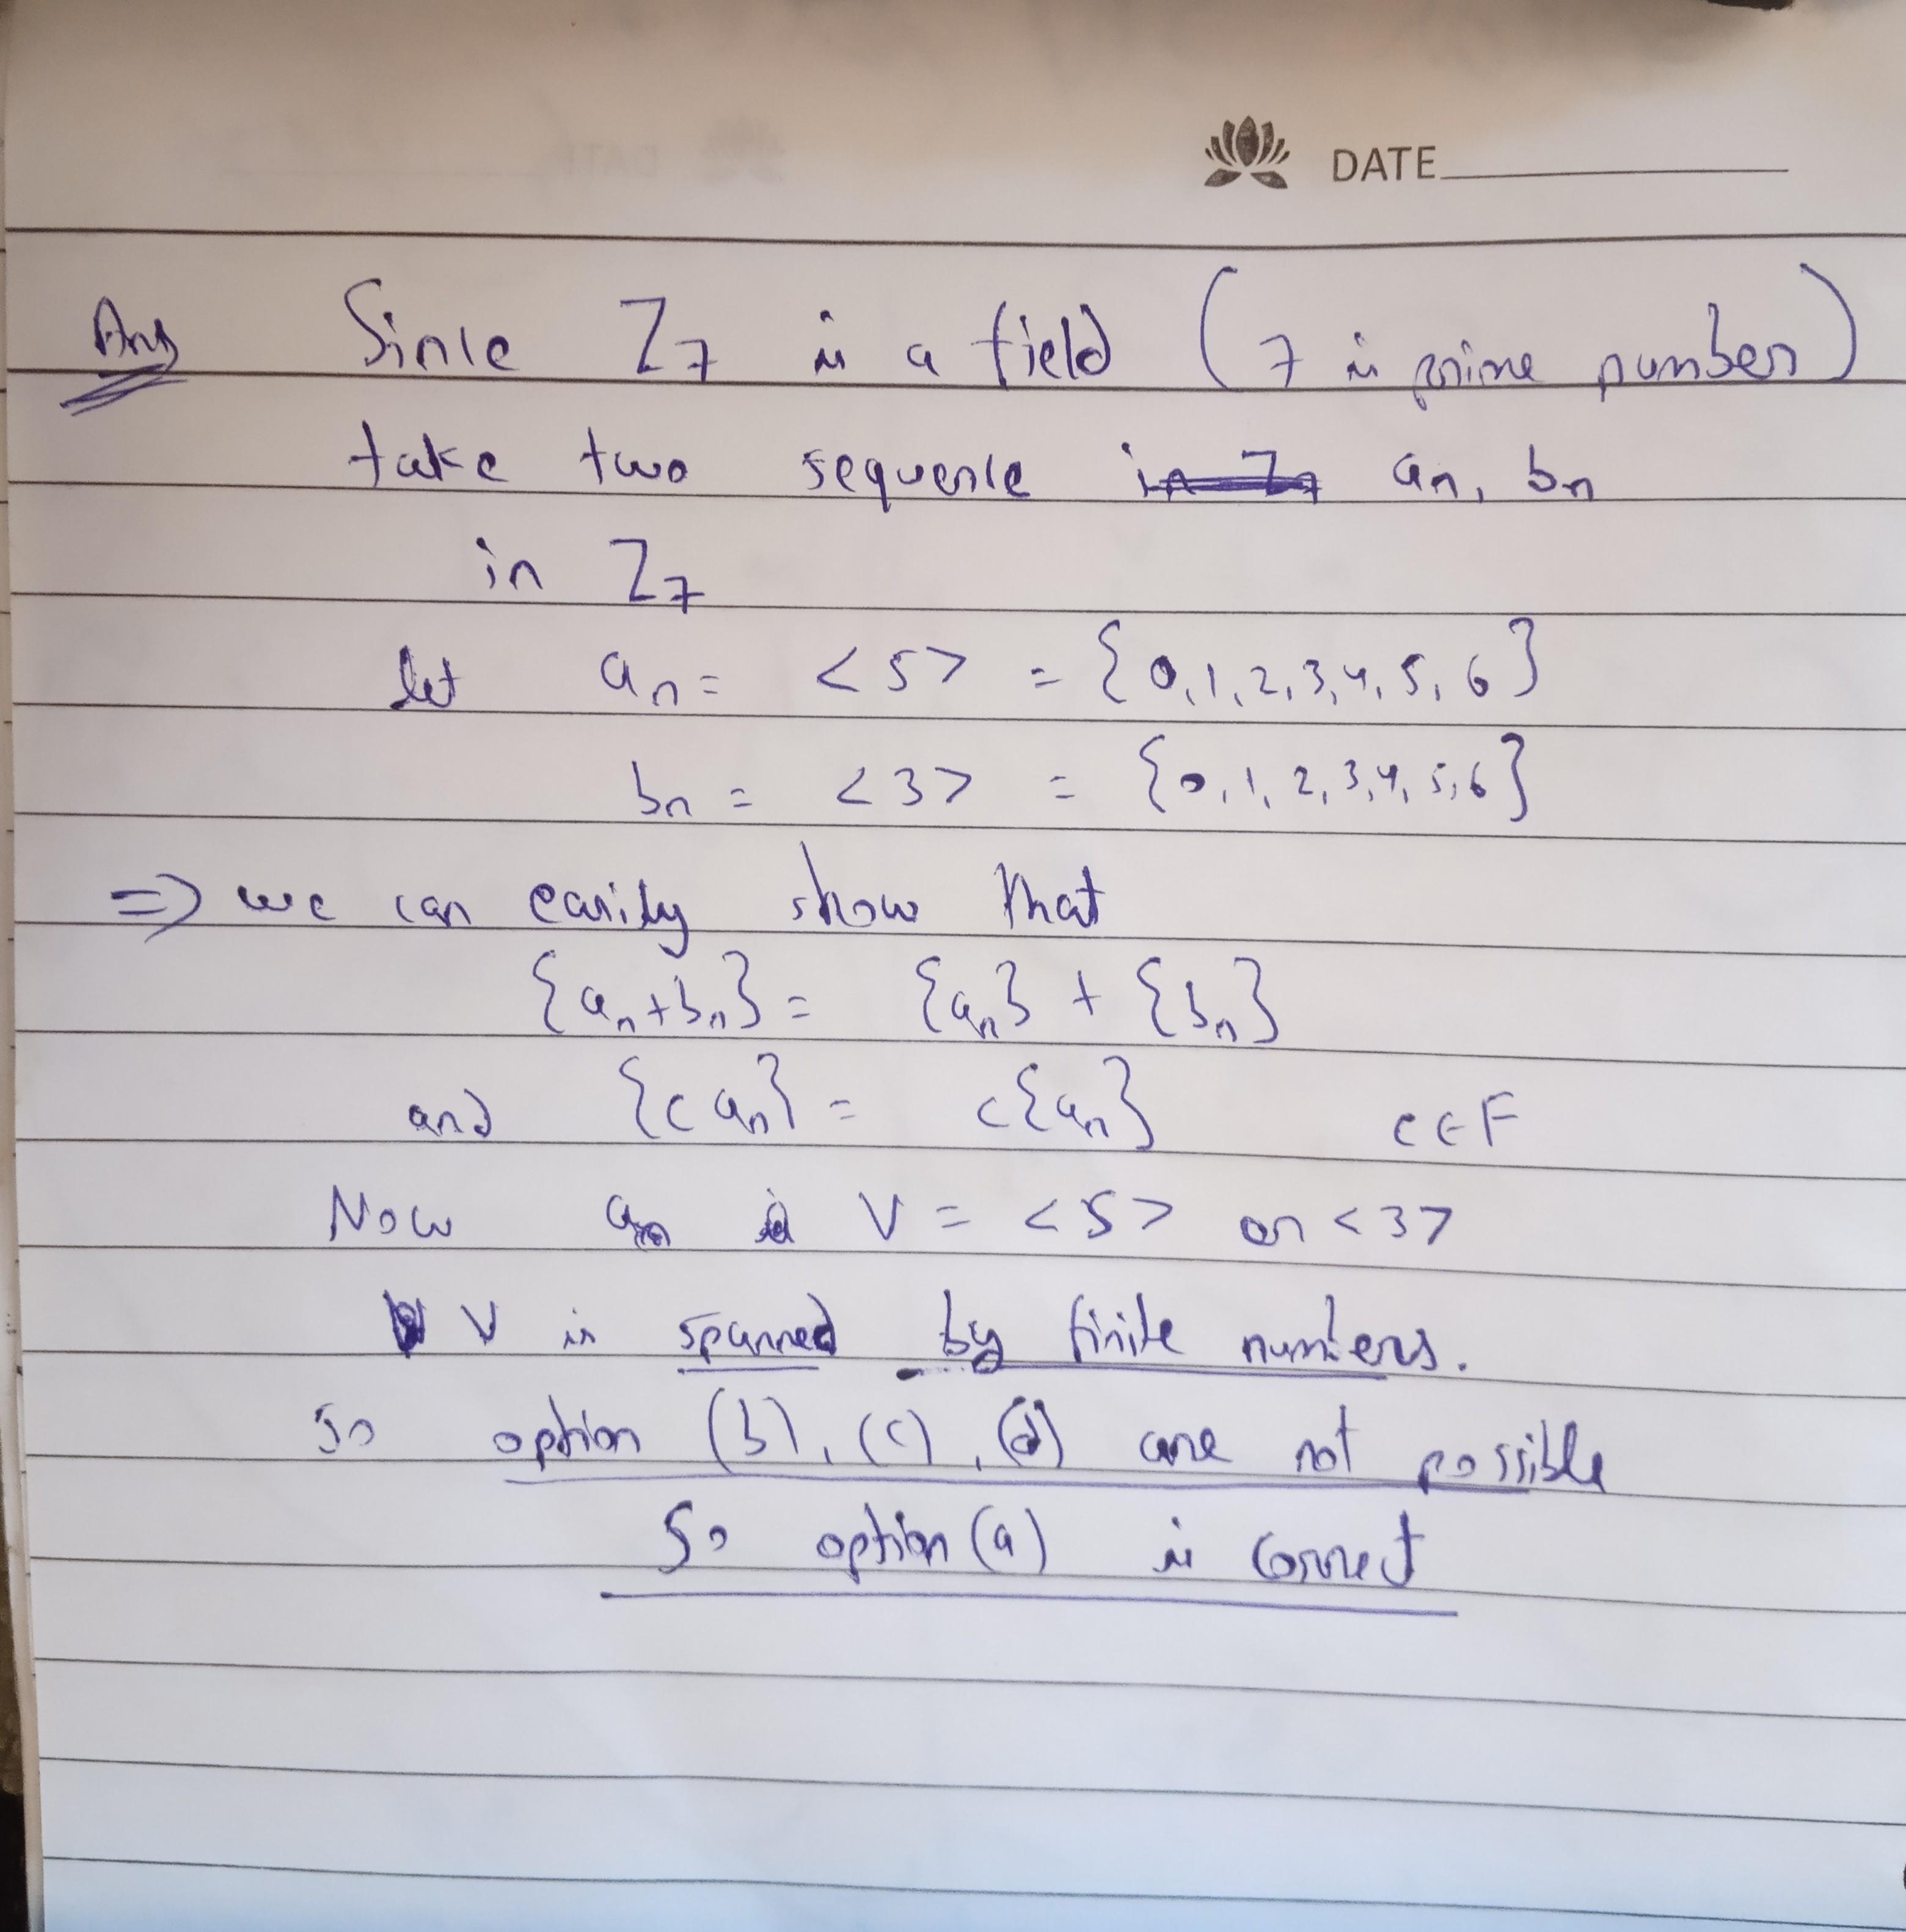 DATE
Ans Since Z7 is a field (7 is prime number)
take two sequence an, bn
in Z7
let an = <5> = {0,1,2,3,4,5,6}
bn = <3> = {0,1,2,3,4,5,6}
=> we can easily show that
{an+bn} = {an} + {bn}
and {c an} = c{an} c∈F
Now an is V = <5> or <3>
V is spanned by finite numbers.
So option (b), (c), (d) are not possible
So option (a) is correct